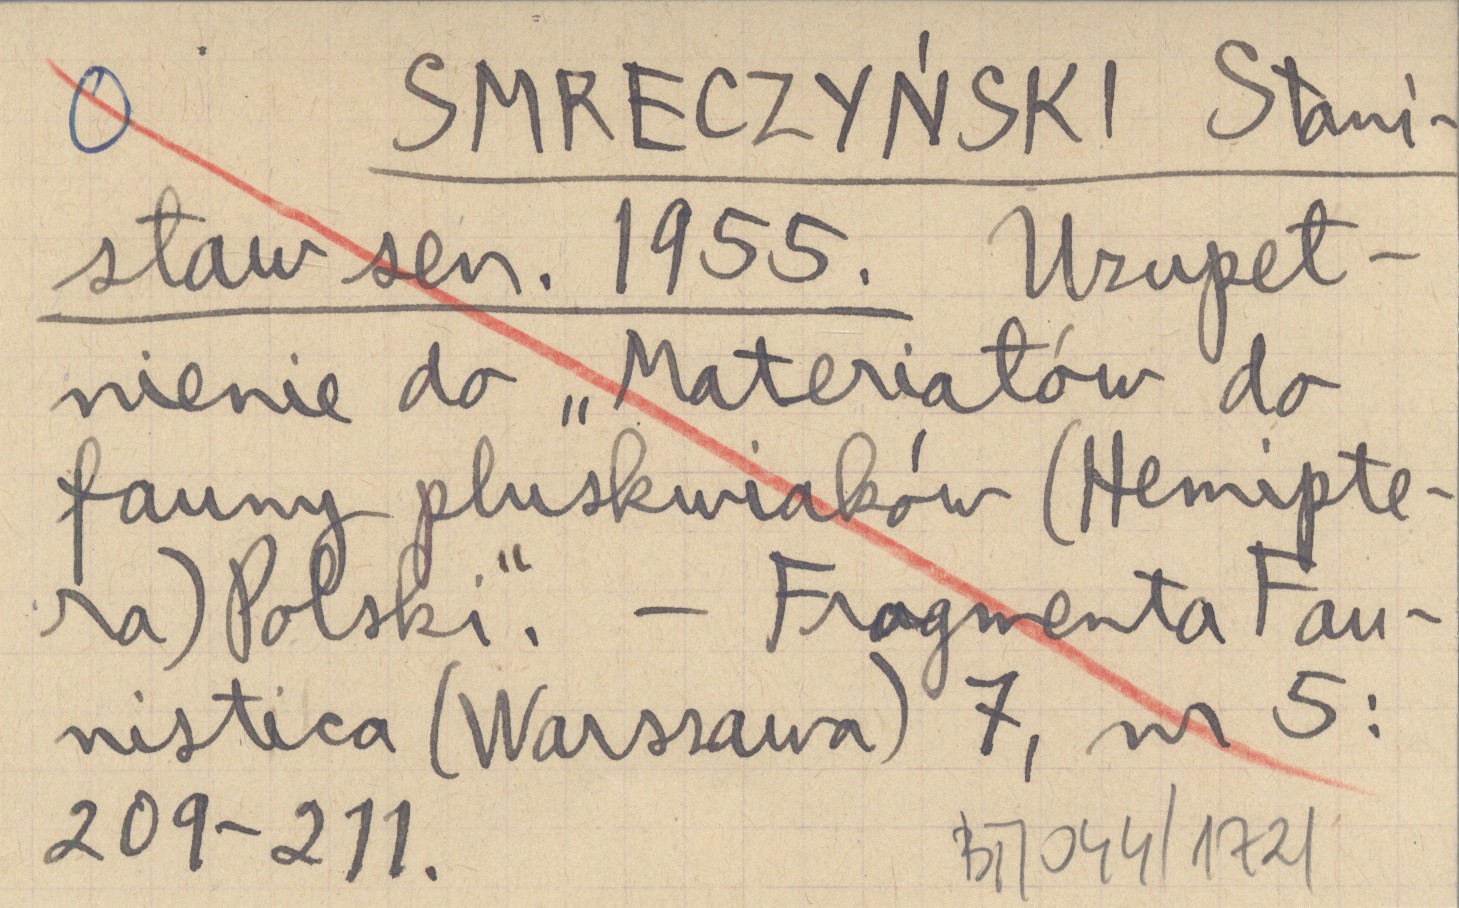 O SMRECZYŃSKI Stani-
sław sen. 1955. Uzupeł-
nienie do „Materiałów do
fauny pluskwiaków (Hemipte-
ra) Polski“. — Fragmenta Fau-
nistica (Warszawa) 7, nr 5:
209-211.
044/172